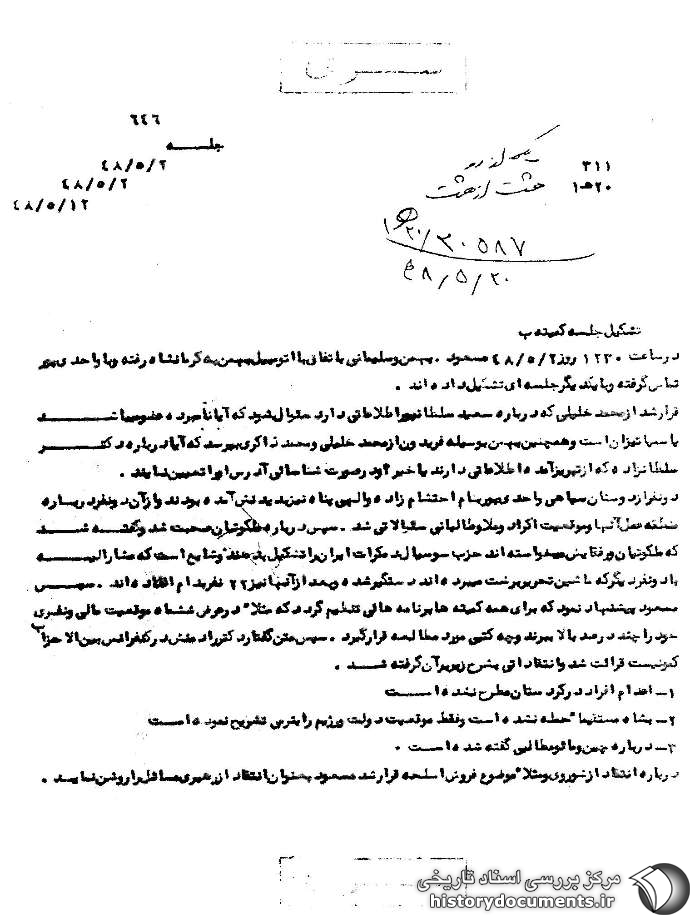 سری
۶۴۶
جلسه
۴۸/۵/۲
۴۸/۵/۲
۴۸/۵/۱۲
۳۱۱
۲۰هـ۱
هشت از هشت
۲۰/۳۰۵۸۷
۴۸/۵/۲۰
تشکیل جلسه کمیته ب
در ساعت ۱۲۳۰ روز ۴۸/۵/۲ مسعود . بهمن و سلیمانی باتفاق با اتومبیل بهمن به کرمانشاه رفته و با واحدی
تماس گرفته و با یکدیگر جلسه ای تشکیل داده اند .
قرار شد از محمد خلیلی که درباره سعید سلطانپور اطلاعاتی دارد سئوال شود که آیا نامبرده
یا سمپاتیزان است و همچنین بهمن بوسیله فریدون از محمد خلیلی و محمد ذاکری بپرسد که آیا درباره دکتر
که از تبریز آمده اطلاعاتی دارند یا خیر و در صورت شناسائی آدرس او را تعیین نمایند .
دو نفر از دوستان سپاهی واحدی بنام احتشام زاده و الهی پناه نیز بدیدنش آمده بودند و از آن دو نفر درباره
منطقه عمل آنها و موقعیت اکراد و ملا و طالبانی سئوالاتی شد . سپس درباره ملکوتیان صحبت شد و گفته شد
که ملکوتیان و رفقایش میخواسته اند حزب سوسیال دمکرات ایران را تشکیل بدهند و شایع است که مشارالیه
با دو نفر دیگر که ماشین تحریر میبرده اند دستگیر شده و بعد از آنها نیز ۲۲ نفر بدام افتاده اند . سپس
مسعود پیشنهاد نمود که برای همه کمیته ها برنامه هائی تنظیم گردد که مثلا" در عرض ششماه موقعیت مالی و نفری
خود را چند درصد بالا ببرند و چه کتبی مورد مطالعه قرار گیرد . سپس متن گفتار دکتر رادمنش در کنفرانس بین الاحزاب
کمونیست قرائت شد و انتقاداتی بشرح زیر بر آن گرفته شد .
۱ـ اعدام افراد در کردستان مطرح نشده است
۲ـ بشاه مستقیما" حمله نشده است و فقط موقعیت دولت و رژیم را بنرمی تشریح نموده است
۳ـ درباره چین و مائو مطالبی گفته شده است .
درباره انتقاد از شوروی و مثلا" موضوع فروش اسلحه قرار شد مسعود بعنوان انتقاد از رهبری مسائل را روشن نماید .
مرکز بررسی اسناد تاریخی
historydocuments.ir